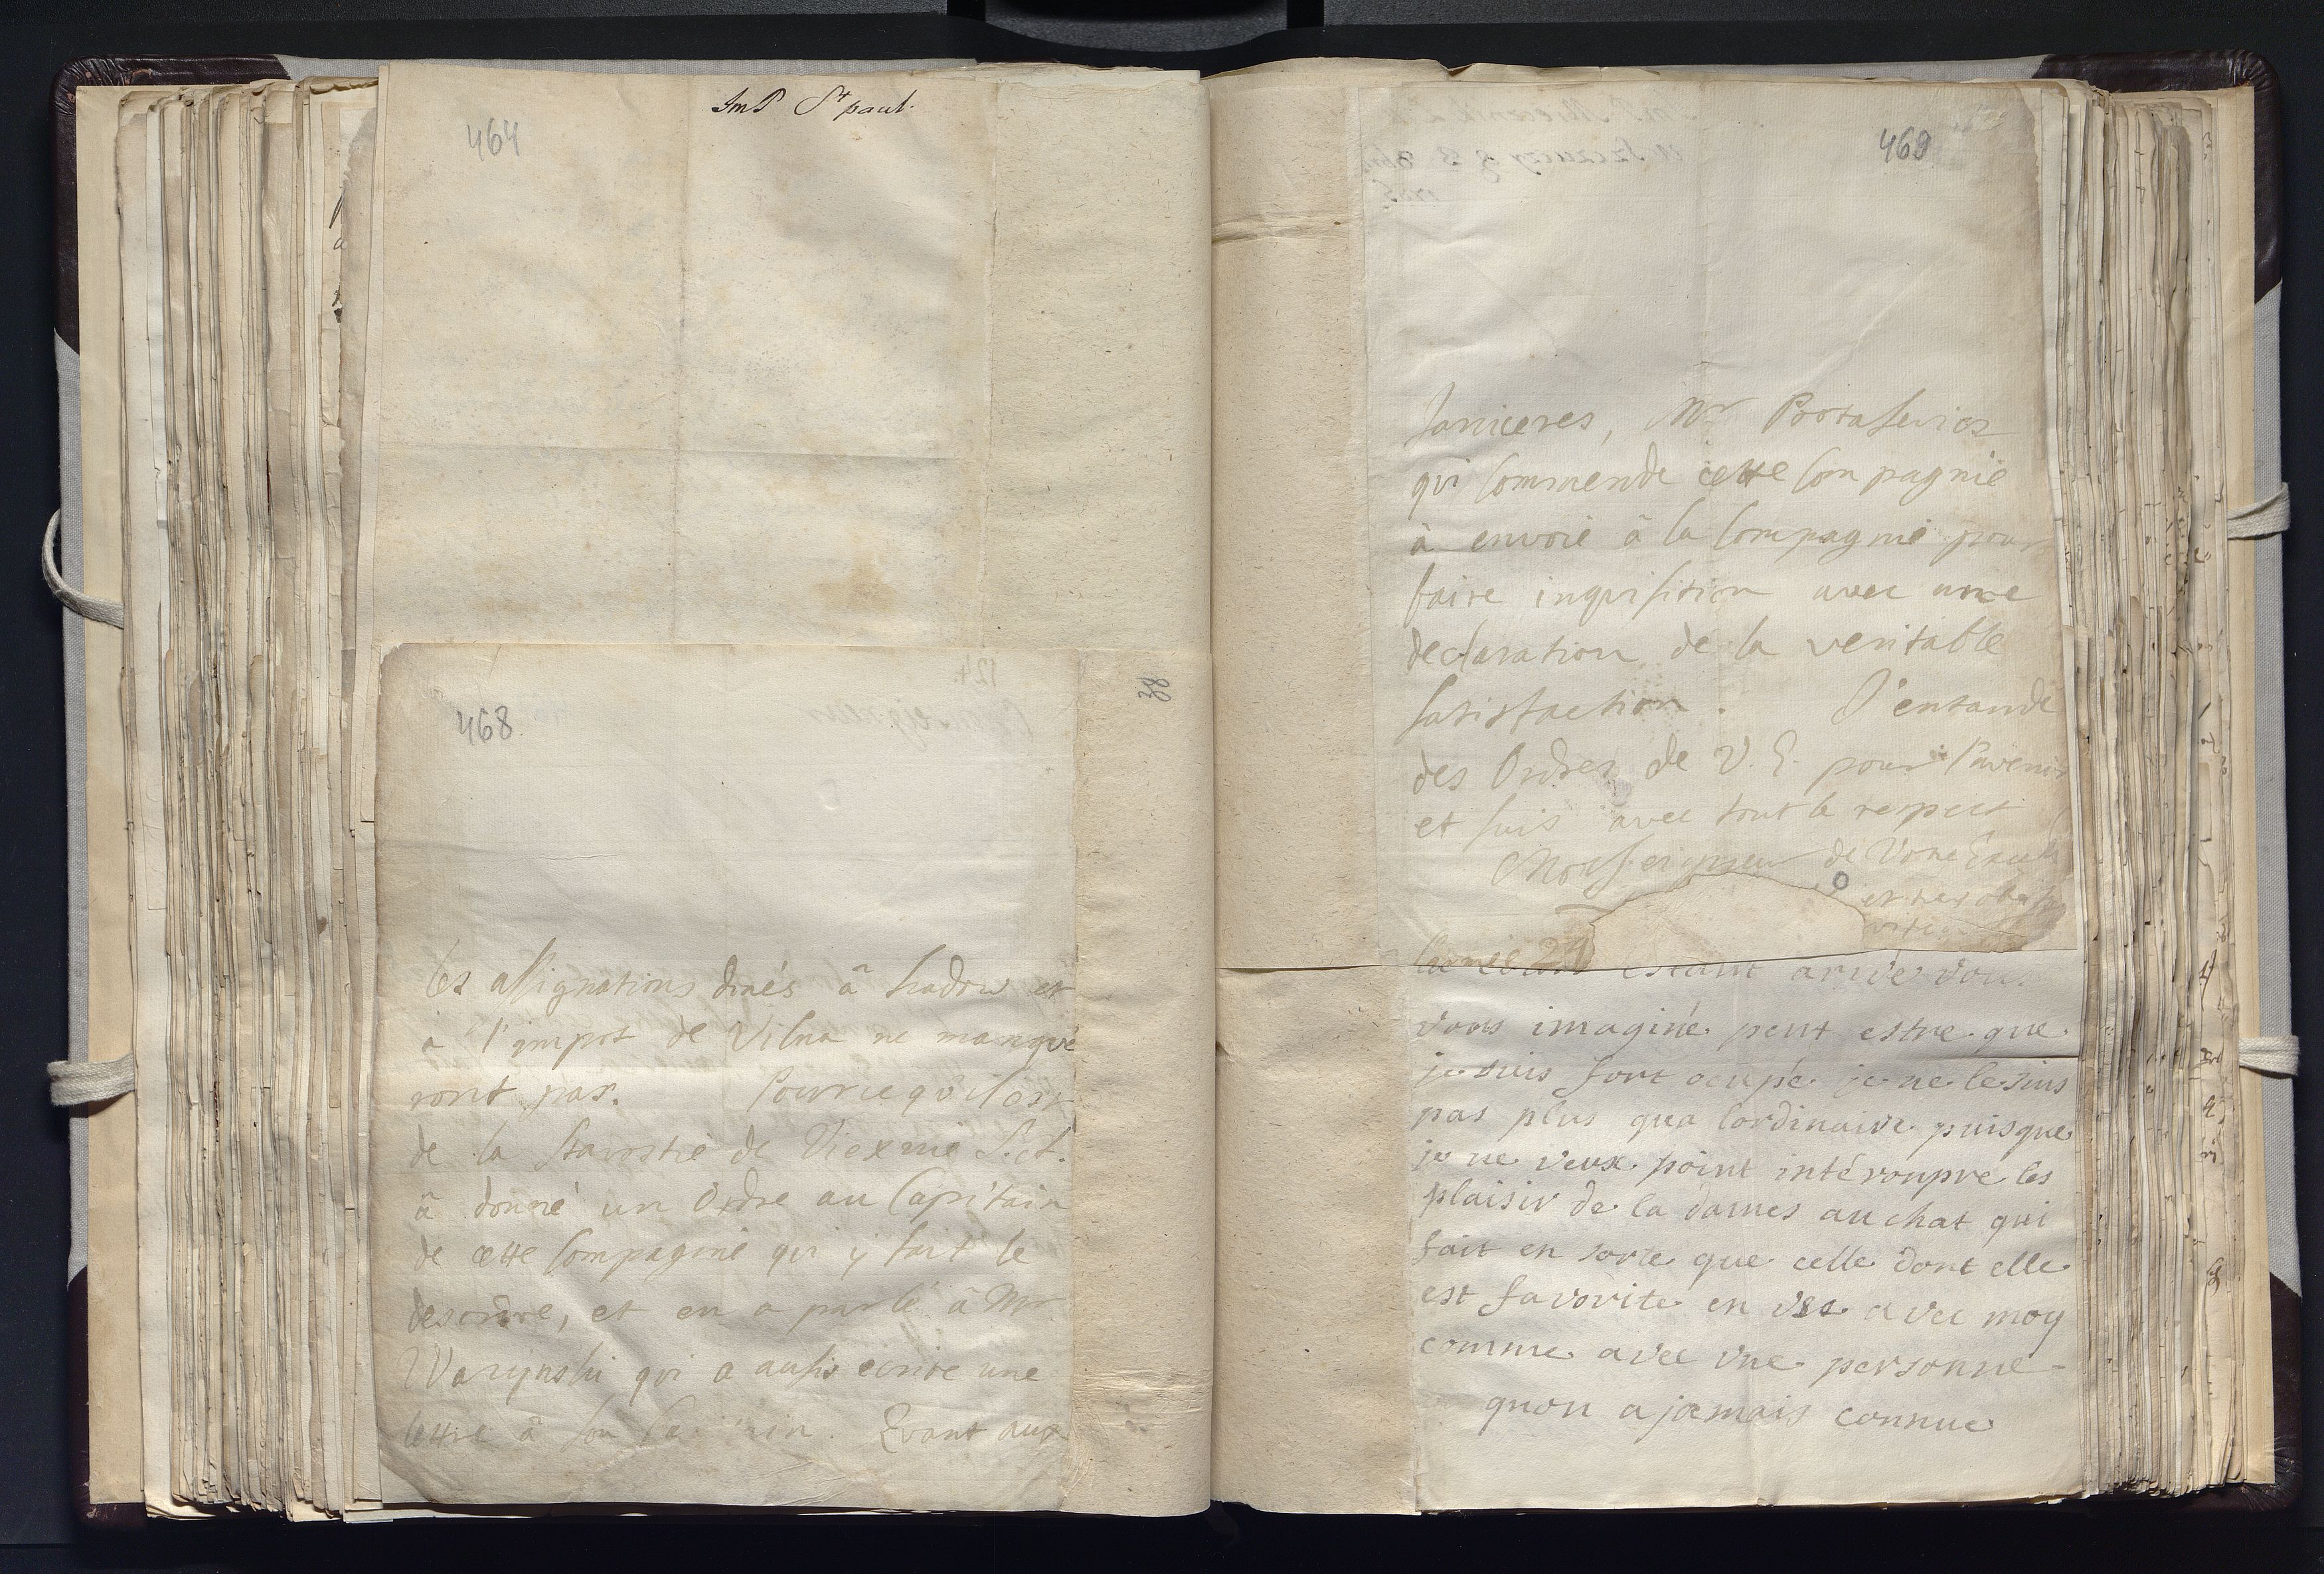 464
JmP St paul.
468.
les assignations dnés â Sadow et
â l'jmpot de Vilna ne manqué
ront pas. Pource qu'il est
de la Starostie de Viexnie S.A.
â donné un Ordre au Capitain
de cette Compagnie qui y fait le
desordre, et en a parlé â Mr
qui a aussis écrite une
lettre â son. Quant aux
38
469
Janiceres, Mr Protasevicz
qui Commende cette Compagnie
â envoié â la Compagnie pour
faire inquisition avec une
declaration de la veritable
satisfaction. J'entande
des Ordres de V. E. pour l'avenir
et suis avec tout le respect
Monseigneur de Votre Excell
et tres obeis
estant arivé vou
vous imaginé peut estre que
je suis fort ocupé je ne le suis
pas plus qua lordinaire puisque
je ne veux point intéronpre les
plaisir de la dames au chat qui
fait en sorte que celle dont elle
est favorite en vse avec moy
comme avec vne personne
quon a jamais connue